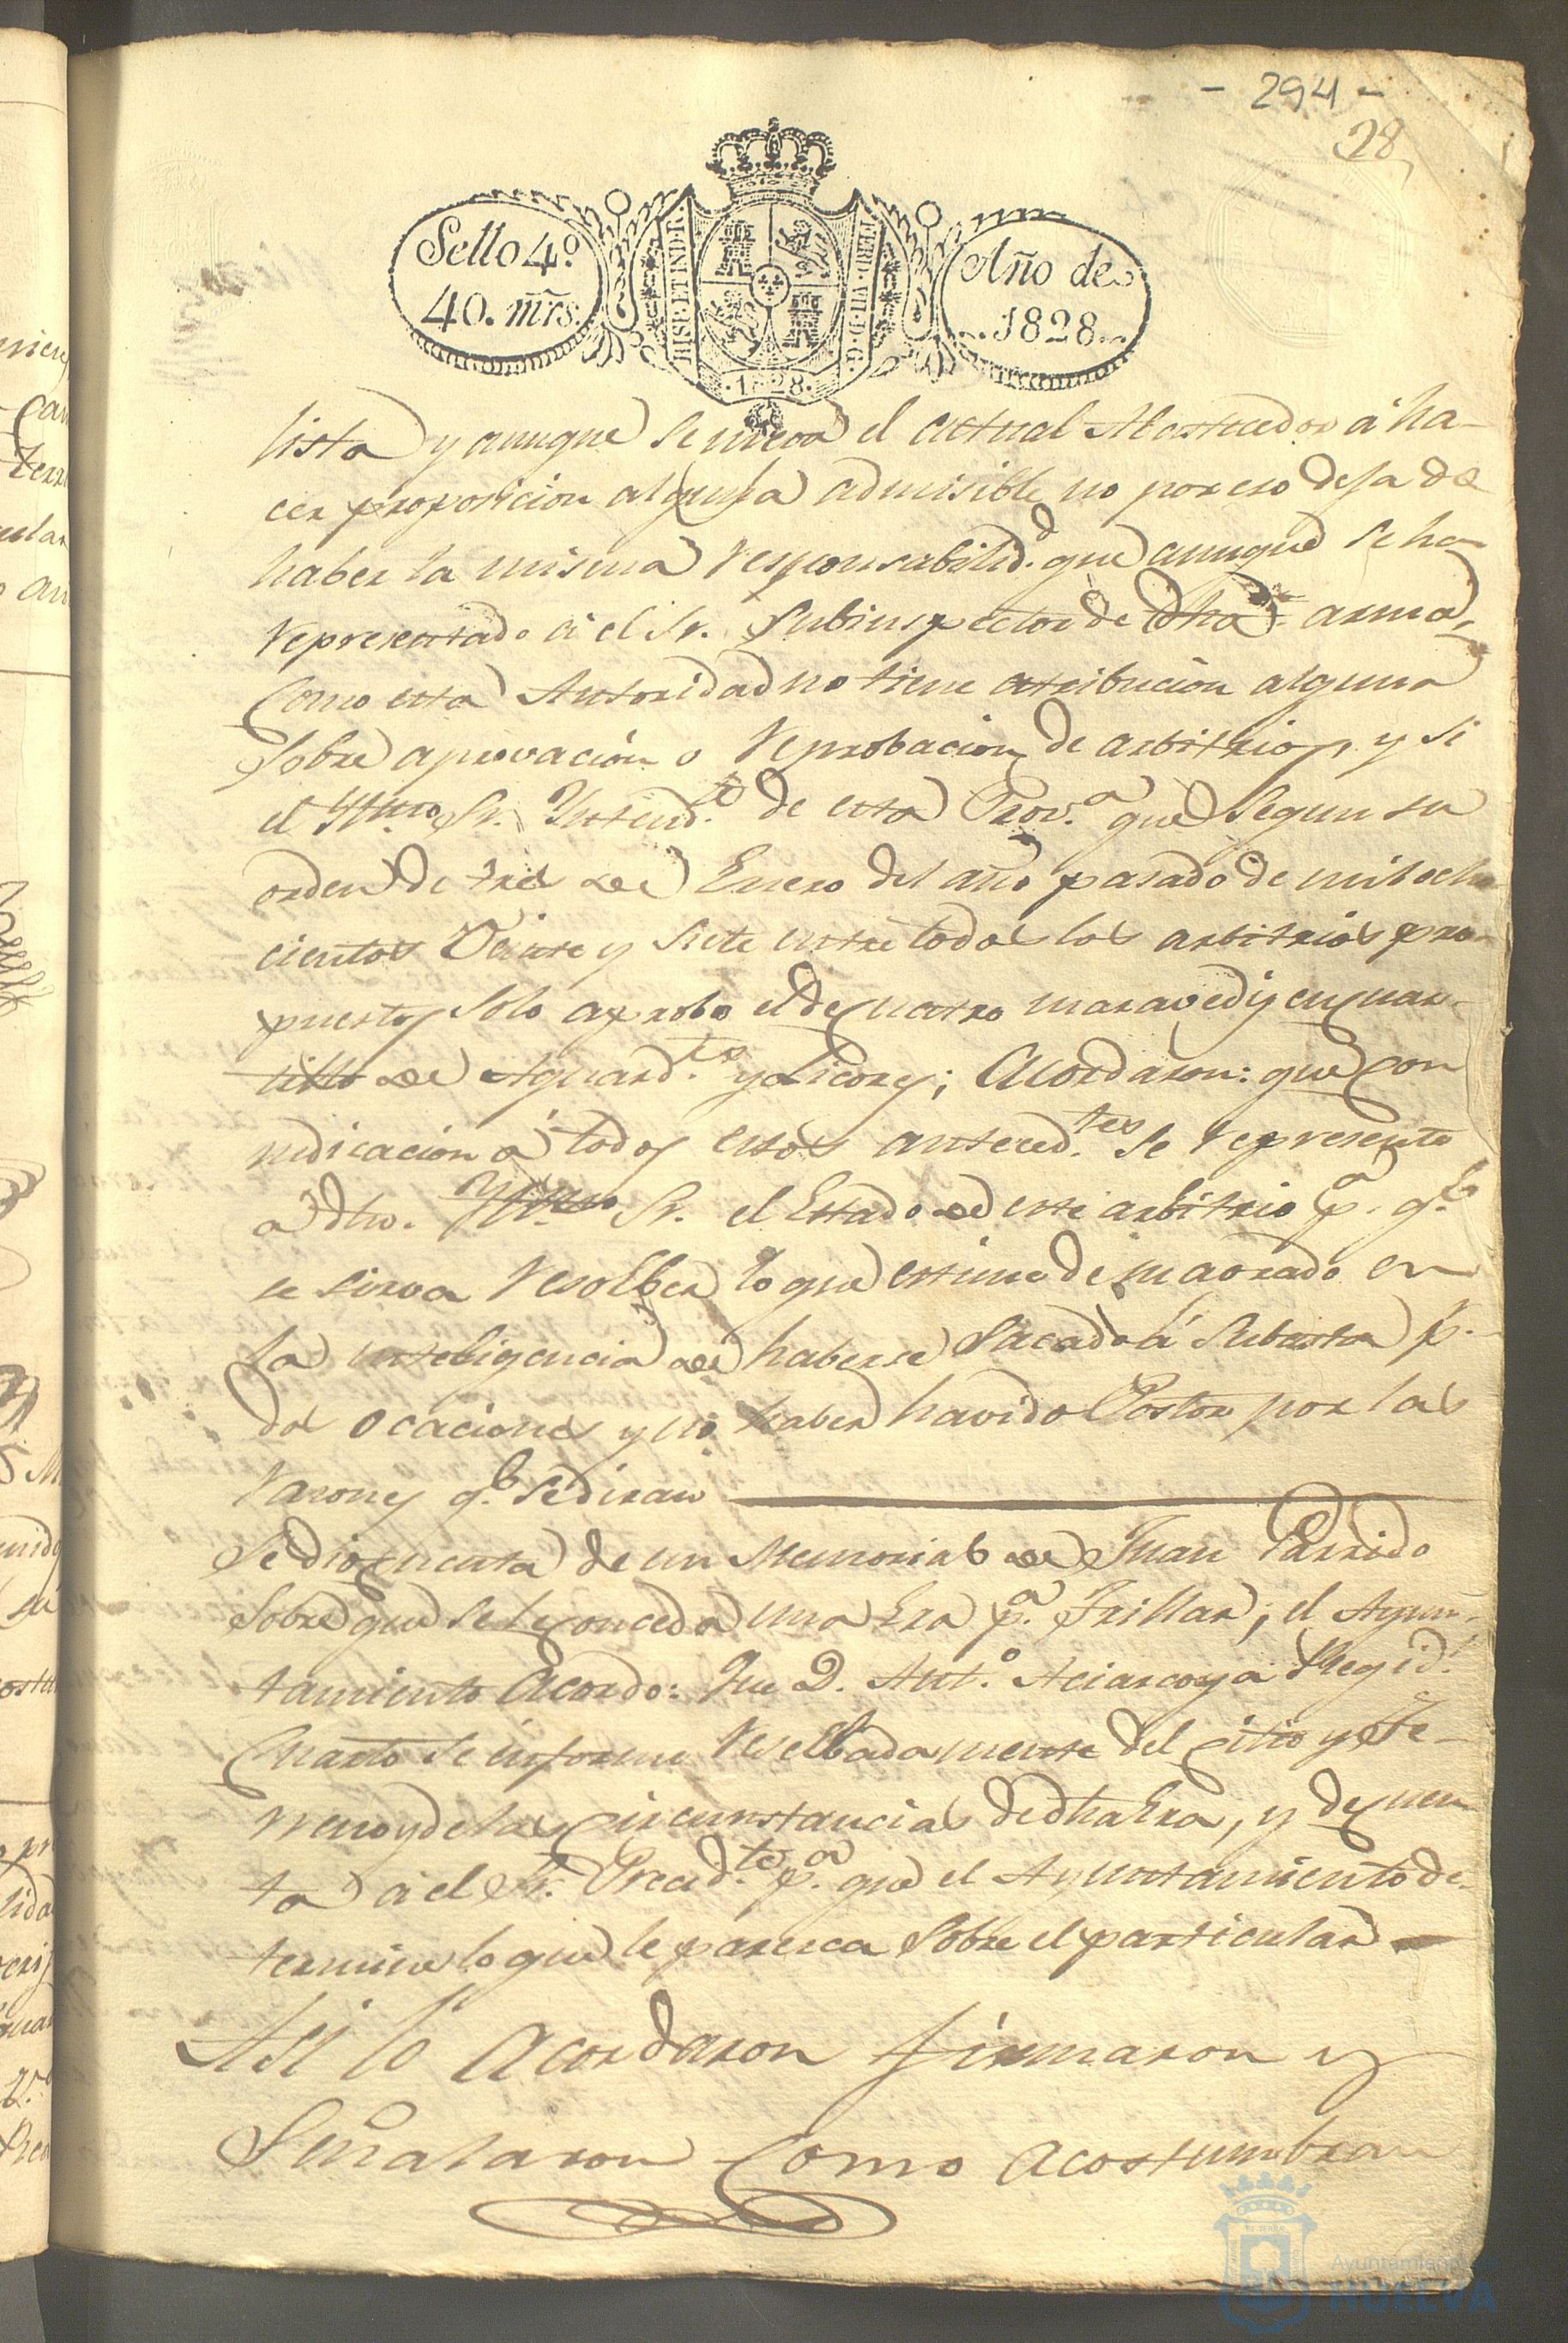 - 294 -
28
Sello 4º
40. mrs.
HISP. ET IND. R.
FERD. VII. D. G.
·1828·
Año de
1828
lista y aunque se niega el actual Abastecedor á ha-
cer proposicion alguna admisible no por eso deja de
haber la misma responsabilid.d que aunque se ha
representado á el Sr. Subinspector de dha arma,
Como esta Autoridad no tiene atribucion alguna
Sobre aprovacion o reprobacion de arbitrios y si
el Yltmo Sr. Yntend.te de esta Prov.a que Segun su
orden de tres de Enero del año pasado de mil ocho
cientos Veinte y Siete entre todos los arbitrios pro-
puestos Solo aprobo el de cuatro maravedis en cuar-
tillo de Aguard.tes y Licores; Acordaron: que con
indicacion á todos estos anteced.tes se represente
a dho. Yltmo Sr. el Estado de este arbitrio p.a q.e
se sirva resolber lo que estime de su agrado en
la inteligencia de haberse Sacado á Subasta p.
dos ocaciones y no haber havido Postor por las
razones q.e se dirán
Se dio cuenta de un Memorial de Juan Garrido
Sobre que se le conceda una Era p.a Trillar; el Ayun-
tamiento Acordo: Que D. Ant.o Regid.r
Cuarto se informe reselbadamente del citio y te-
rreno y de las circunstancias de dha Era, y dé cuen
ta á el Sr. Precid.te p.a que el Ayuntamiento de-
termine lo que le paresca Sobre el particular
Asi lo Acordaron firmaron y
Señalaron Como acostumbran
Ayuntamiento
HUELVA